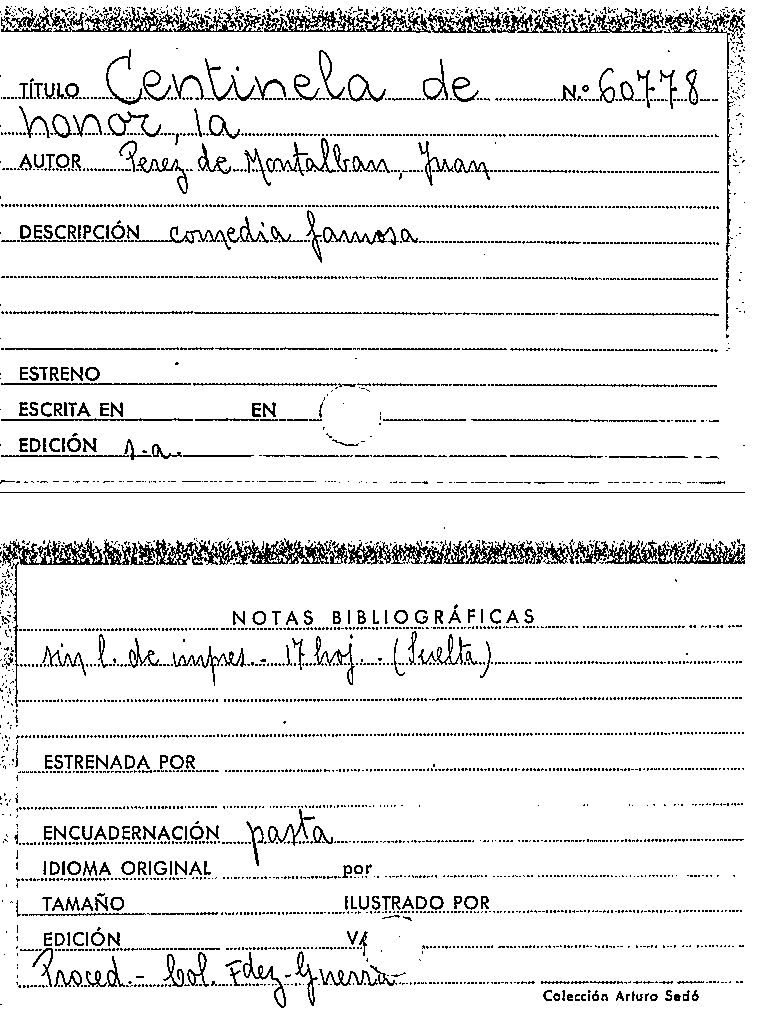 TÍTULO Centinela de N.º 60778
honor, la
AUTOR Perez de Montalban, Juan
DESCRIPCIÓN comedia famosa
ESTRENO
ESCRITA EN EN
EDICIÓN s.a.
NOTAS BIBLIOGRÁFICAS
sin l. de impres. - 17 hoj. - (Suelta)
ESTRENADA POR
ENCUADERNACIÓN pasta
IDIOMA ORIGINAL por
TAMAÑO ILUSTRADO POR
EDICIÓN
Proced. - Col. Fdez-Guerra
Colección Arturo Sedó